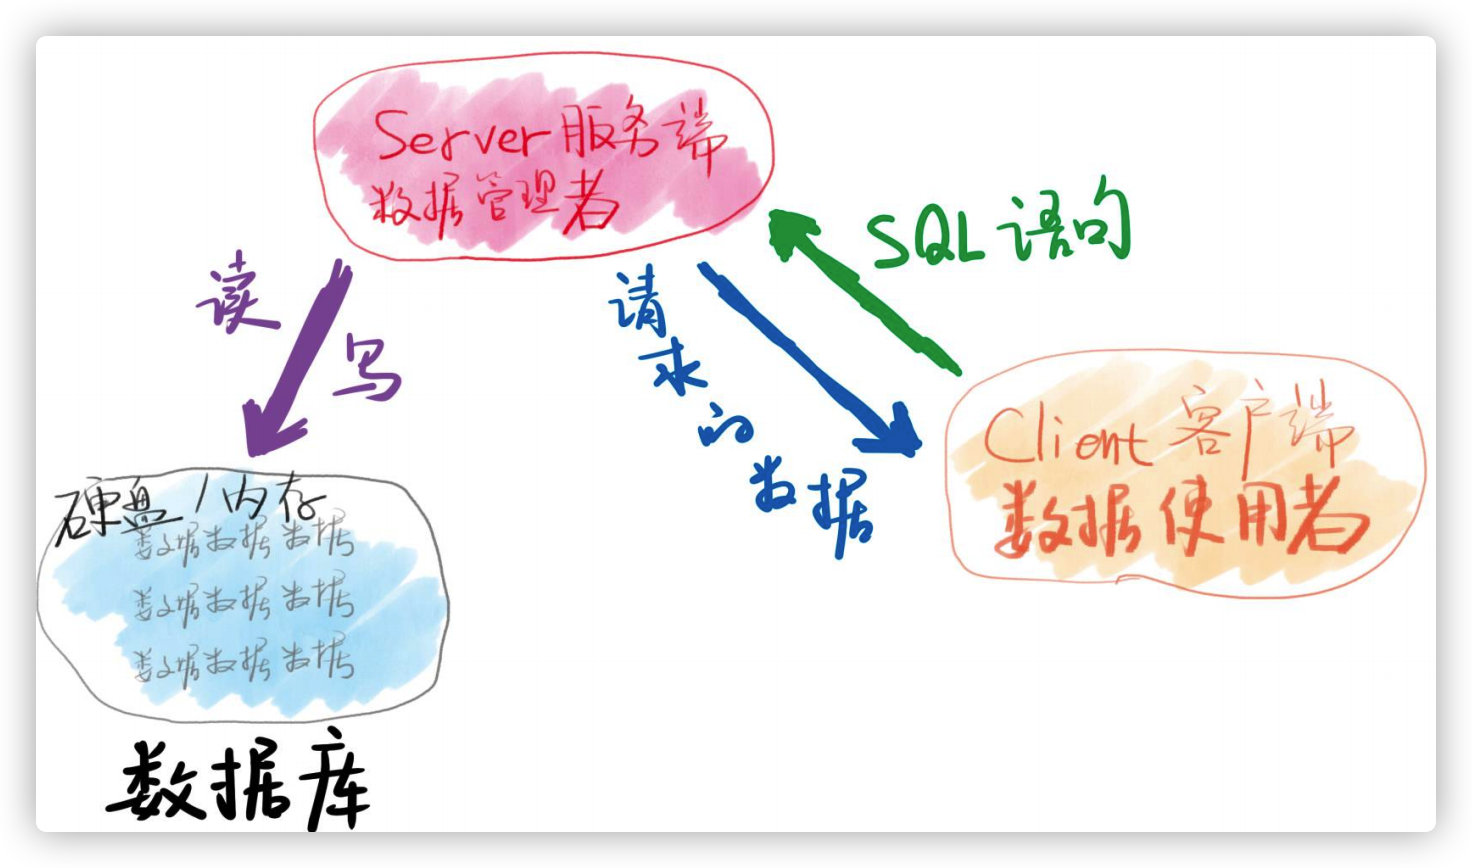 Server 服务端
数据管理者
SQL 语句
读
写
请求的数据
Client 客户端
数据使用者
硬盘/内存
数据数据数据
数据数据数据
数据数据数据
数据库